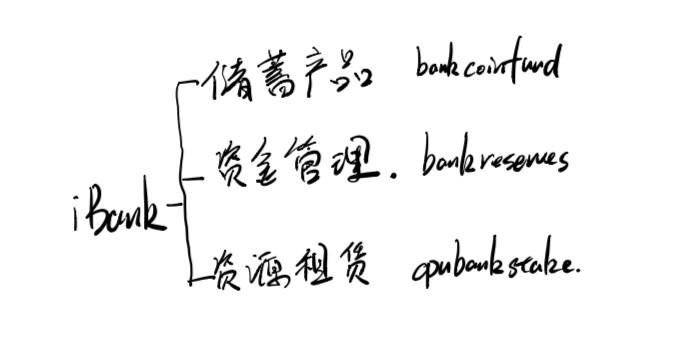 储蓄产品 bankcoinfund
资金管理. bankreserves
iBank
资源租赁 cpubankstake.